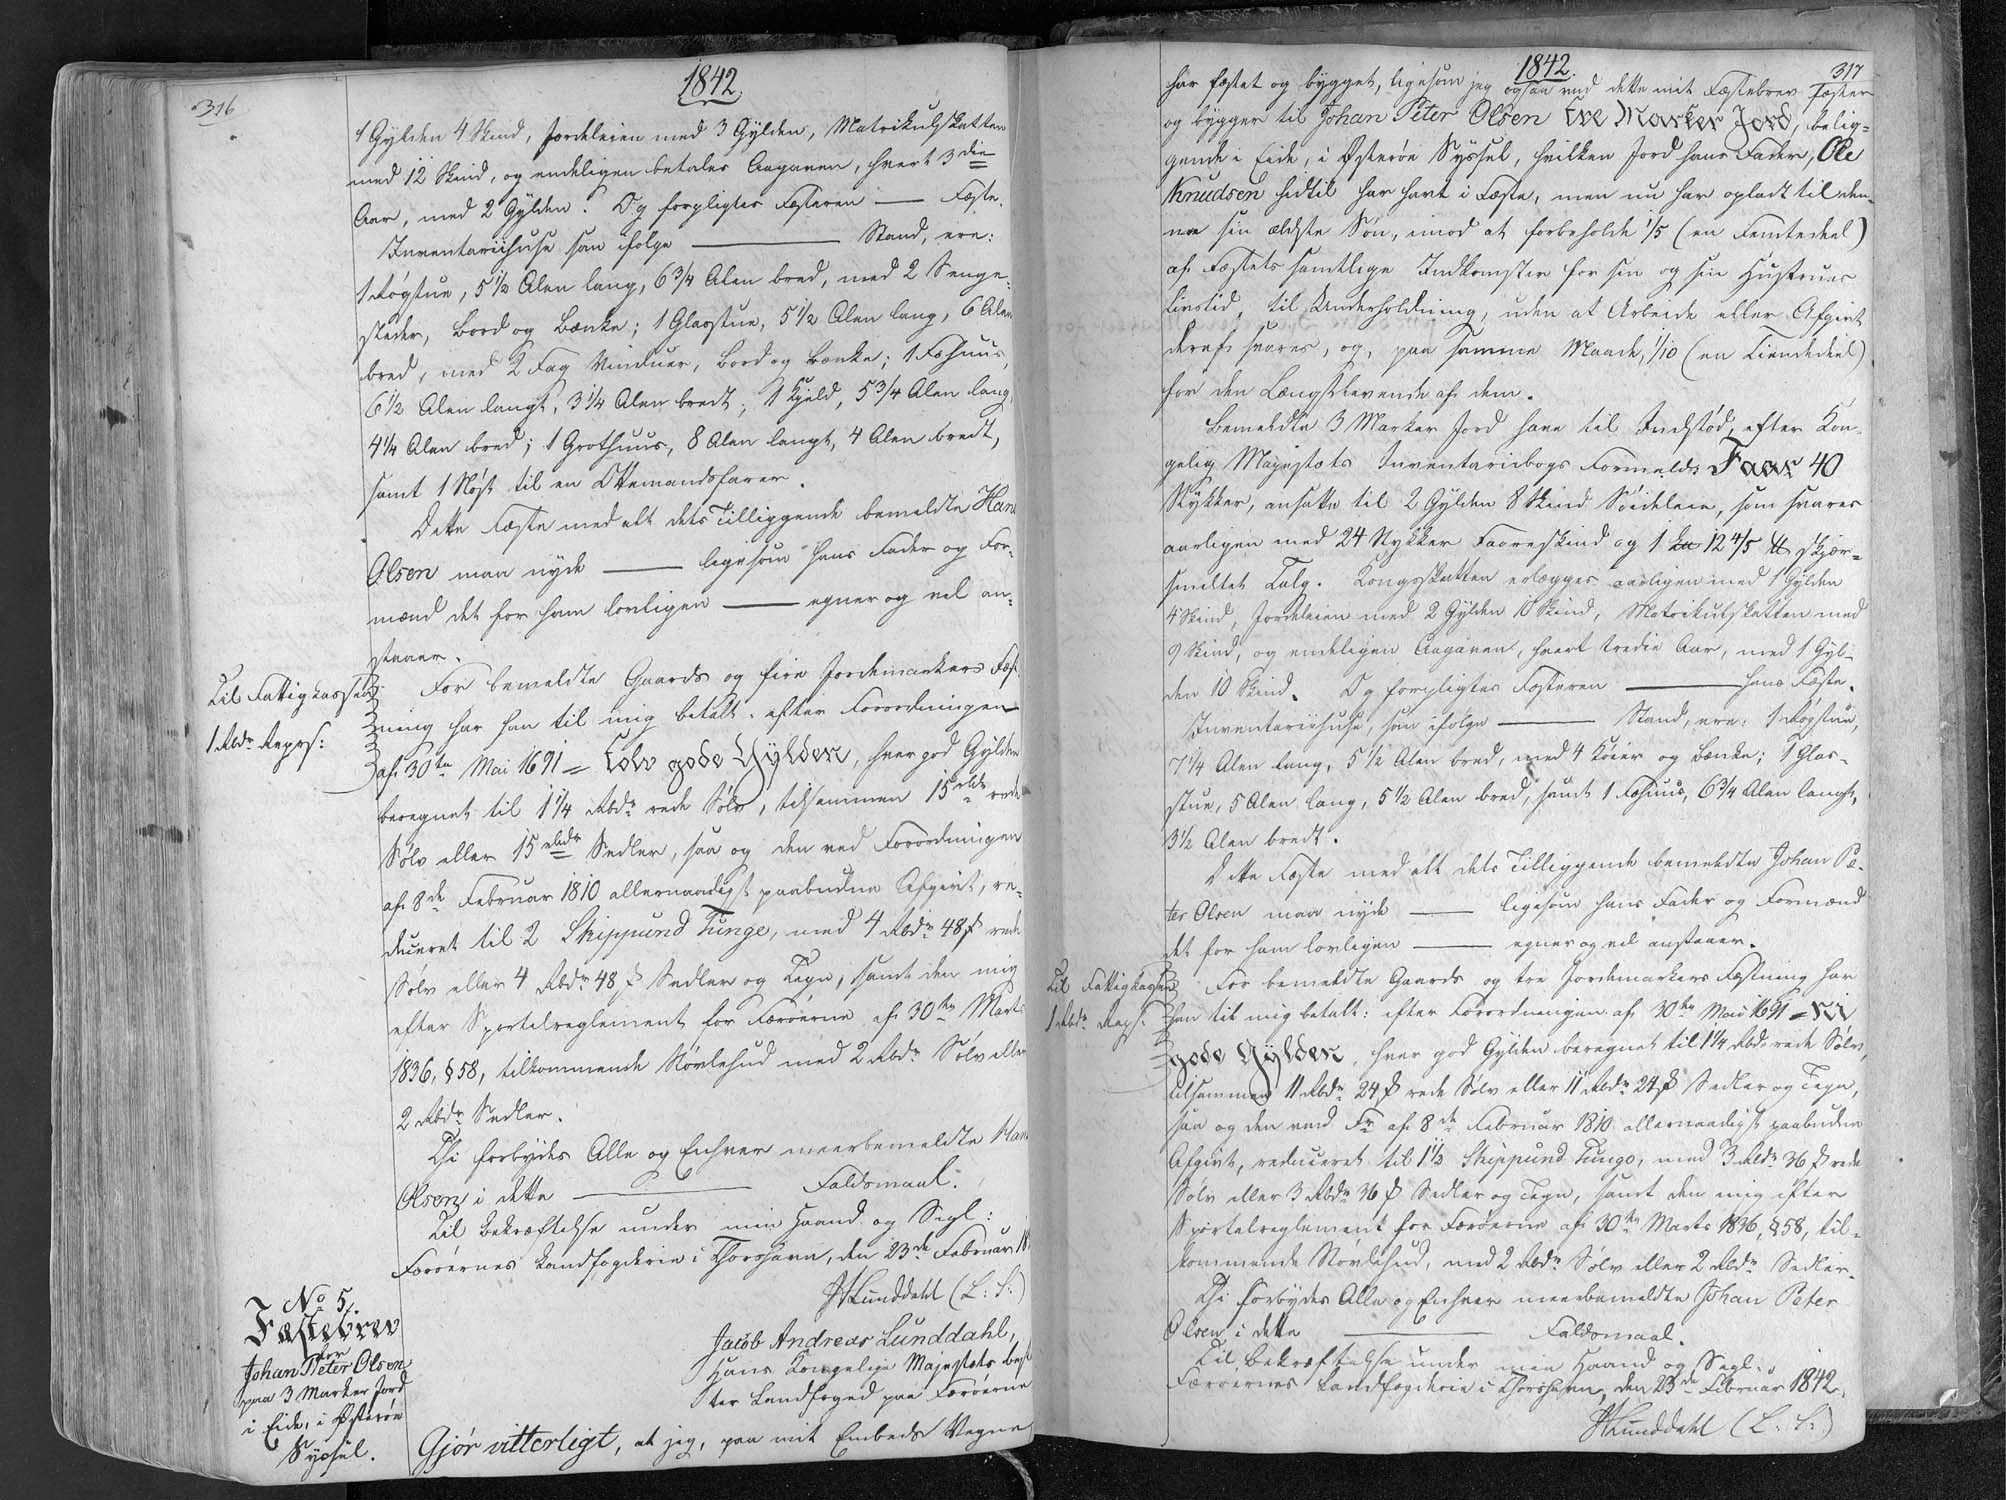 316
1842.
1 Gylden 4 Skind, Jordeleien med 3 Gylden, Matrikulskatten
med 12 Skind, og endeligen betales Aagaven, hvert 3die
Aar, med 2 Gylden. Og forpligtes Fæsteren — Fæste.
Inventariihuse som ifølge — Stand, ere:
1 Røgstue, 5 1/2 Alen lang, 6 3/4 Alen bred, med 2 Senge-
steder, Bord og Bænke; 1 Glasstue, 5 1/2 Alen lang, 6 Alen
bred, med 2 Fag Vinduer, Bord og Bænke; 1 Fæhuus,
6 1/2 Alen langt, 3 1/4 Alen bredt; 1 Hjeld, 5 3/4 Alen lang,
4 1/4 Alen bred; 1 Grothuus, 8 Alen langt, 4 Alen bredt,
samt 1 Nøst til en Ottemandsfarer.
Dette Fæste med alt dets Tilliggende bemeldte Hans
Olsen maa nyde — ligesom hans Fader og For-
mænd det for ham lovligen — egner og vel an-
staaer.
Til Fattigkassen
1 Rbdr Reprs:
For bemeldte Gaards og fire Jordemarkers Fæst-
ning har han til mig betalt: efter Forordningen
af 30te Mai 1691 = Tolv gode Gylden, hver god Gylden
beregnet til 1 1/4 Rbdr rede Sølv, tilsammen 15 Rbdr rede
Sølv eller 15 Rbdr Sedler, saa og den ved Forordningen
af 8de Februar 1810 allernaadigst paabudne Afgivt, re-
duceret til 2 Skippund Tunge, med 4 Rbdr 48 ß rede
Sølv eller 4 Rbdr 48 ß Sedler og Tegn, samt den mig
efter Sportelreglement for Færøerne af 30te Marts
1836, § 58, tilkommende Støvlehud med 2 Rbdr Sølv eller
2 Rbdr Sedler.
Thi forbydes Alle og Enhver meerbemeldte Hans
Olsen i dette — Faldsmaal.
Til Bekræftelse under min Haand og Segl:
Færøernes Landfogderie i Thorshavn, den 23de Februar 18
JALunddahl (L: S:)
No 5.
Fæstebrev
for
Johan Peter Olsen
paa 3 Marker Jord
i Eide, i Østerøe
Syssel.
Jacob Andreas Lunddahl,
Hans Kongelige Majestæts best
ter Landfoged paa Færøerne
Gjør vitterligt, at jeg, paa mit Embeds Vegne
1842.
317
har fæstet og bygget, ligesom jeg ogsaa ved dette mit Fæstebrev fæster
og bygger til Johan Peter Olsen tre Marker Jord, belig-
gende i Eide, i Østerøe Syssel, hvilken Jord hans Fader, Ole
Knudsen hidtil har havt i Fæste, men nu har opladt til den-
ne sin ældste Søn, imod at forbeholde 1/5 (en Femtedeel)
af Fæstets samtlige Indkomster for sin og sin Hustrues
Livstid, til Underholdning, uden at Arbeide eller Afgivt
deraf svares, og, paa samme Maade, 1/10 (en Tiendedeel)
for den Længstlevende af dem.
Bemeldte 3 Marker Jord have til Indstød, efter Kon-
gelig Majestæts Inventariebogs Formeld: Faar 40
Stykker, ansatte til 2 Gylden 8 Skind Søideleie, som svares
aarligen med 24 Stykker Faareskind og 1 12 4/5 ℔ skjær-
smeltet Talg. Kongsskatten erlægges aarligen med 1 Gylden
4 Skind, Jordeleien med 2 Gylden 10 Skind, Matrikulskatten med
9 Skind, og endeligen Aagaven, hvert tredie Aar, med 1 Gyl-
den 10 Skind. Og forpligtes Fæsteren — hans Fæste.
Inventariihuse, som ifølge — Stand, ere: 1 Røgstue,
7 1/4 Alen lang, 5 1/2 Alen bred, med 4 Køier og Bænke; 1 Glas-
stue, 5 Alen lang, 5 1/2 Alen bred, samt 1 Fæhuus, 6 3/4 Alen langt,
3 1/2 Alen bredt.
Dette Fæste med alt dets Tilliggende bemeldte Johan Pe-
ter Olsen maa nyde — ligesom hans Fader og Formænd
det for ham lovligen — egner og vel anstaaer.
Til Fattigkassen
1 Rbdr Reps:
For bemeldte Gaards og tre Jordemarkers Fæstning har
han til mig betalt: efter Forordningen af 30te Mai 1691 = Ni
gode Gylden, hver god Gylden beregnet til 1 1/4 Rbdr rede Sølv,
tilsammen 11 Rbdr 24 ß rede Sølv eller 11 Rbdr 24 ß Sedler og Tegn,
saa og den ved Fr af 8de Februar 1810 allernaadigst paabudne
Afgivt, reduceret til 1 1/2 Skippund Tunge, med 3 Rbdr 36 ß rede
Sølv eller 3 Rbdr 36 ß Sedler og Tegn, samt den mig efter
Sportelreglement for Færøerne af 30te Marts 1836, § 58, til-
kommende Støvlehud, med 2 Rbdr Sølv eller 2 Rbdr Sedler.
Thi forbydes Alle og Enhver meerbemeldte Johan Peter
Olsen i dette — Faldsmaal.
Til Bekræftelse under min Haand og Segl.
Færøernes Landfogderie i Thorshavn, den 23de Februar 1842.
JALunddahl (L: S:)